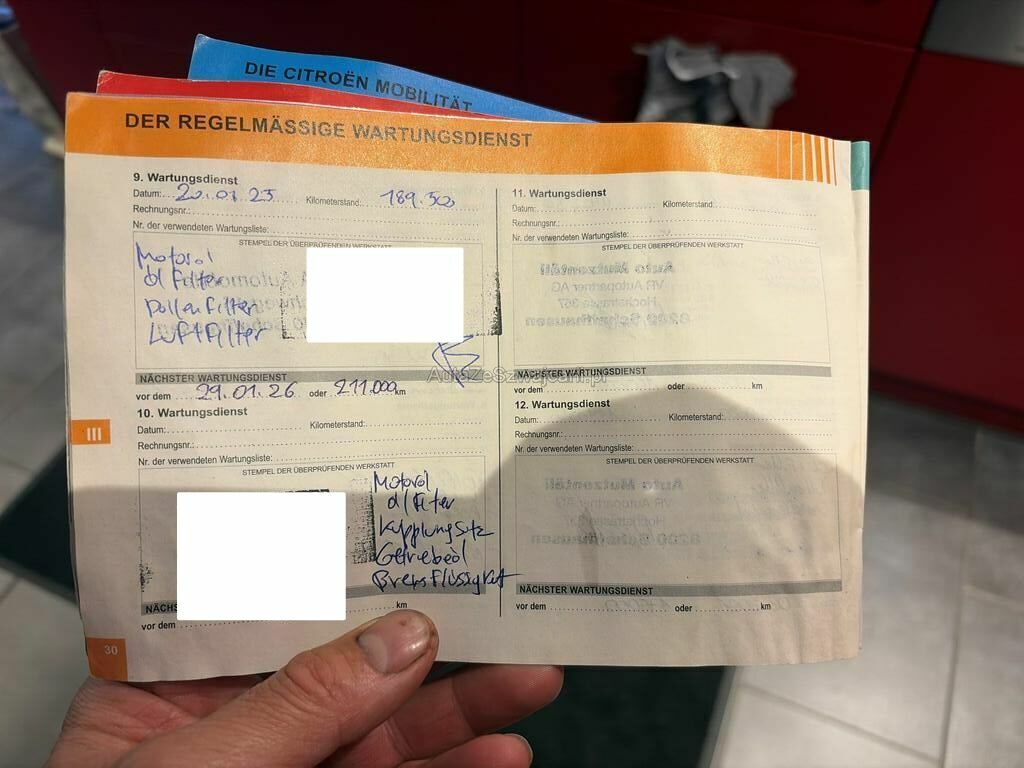 DIE CITROËN MOBILITÄT
DER REGELMÄSSIGE WARTUNGSDIENST
9. Wartungsdienst
Datum: 20.01.25 Kilometerstand: 189.500
Rechnungsnr.:
Nr. der verwendeten Wartungsliste:
STEMPEL DER ÜBERPRÜFENDEN WERKSTATT
Motoröl
öl Filter
Pollenfilter
Luftfilter
NÄCHSTER WARTUNGSDIENST
vor dem 29.01.26 oder 211.000 km
10. Wartungsdienst
Datum: Kilometerstand:
Rechnungsnr.:
Nr. der verwendeten Wartungsliste:
STEMPEL DER ÜBERPRÜFENDEN WERKSTATT
Motoröl
öl Filter
Kupplungsitz
Getriebeöl
Bremsflüssigkeit
NÄCHS
vor dem km
III
30
11. Wartungsdienst
Datum: Kilometerstand:
Rechnungsnr.:
Nr. der verwendeten Wartungsliste:
STEMPEL DER ÜBERPRÜFENDEN WERKSTATT
Auto Mutzentäli
VR Autopartner AG
Hochstrasse 357
8200 Schaffhausen
NÄCHSTER WARTUNGSDIENST
vor dem oder km
12. Wartungsdienst
Datum: Kilometerstand:
Rechnungsnr.:
Nr. der verwendeten Wartungsliste:
STEMPEL DER ÜBERPRÜFENDEN WERKSTATT
Auto Mutzentäli
VR Autopartner AG
8200 Schaffhausen
NÄCHSTER WARTUNGSDIENST
vor dem oder km
AutoZeSzwajcarii.pl